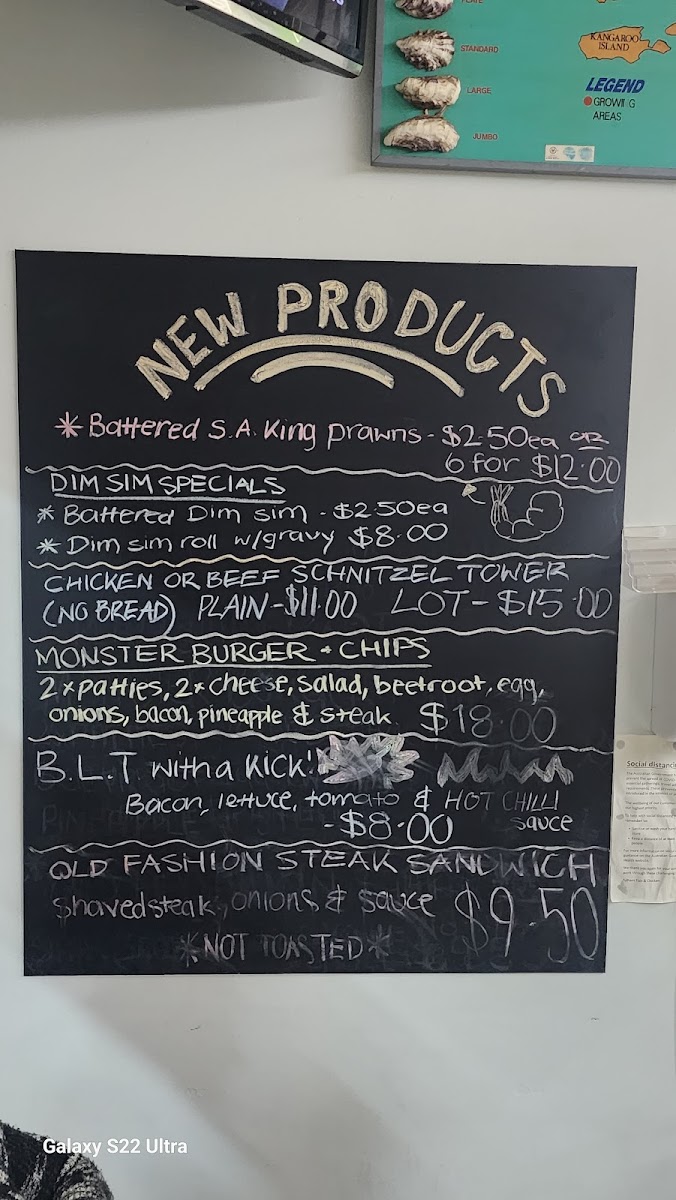 PLATE
STANDARD
LARGE
JUMBO
KANGAROO
ISLAND
LEGEND
GROWING
AREAS
NEW PRODUCTS
* Battered S.A. King prawns - $2.50ea OR
6 for $12.00
DIM SIM SPECIALS
* Battered Dim sim - $2.50ea
* Dim sim roll w/gravy $8.00
CHICKEN OR BEEF SCHNITZEL TOWER
(NO BREAD) PLAIN - $11.00 LOT - $15.00
MONSTER BURGER + CHIPS
2 x patties, 2 x cheese, salad, beetroot, egg,
onions, bacon, pineapple & steak $18.00
B.L.T with a KICK!
Bacon, lettuce, tomato & HOT CHILLI
- $8.00 sauce
OLD FASHION STEAK SANDWICH
Shaved steak, onions & sauce $9.50
*NOT TOASTED*
Social distancing
Galaxy S22 Ultra